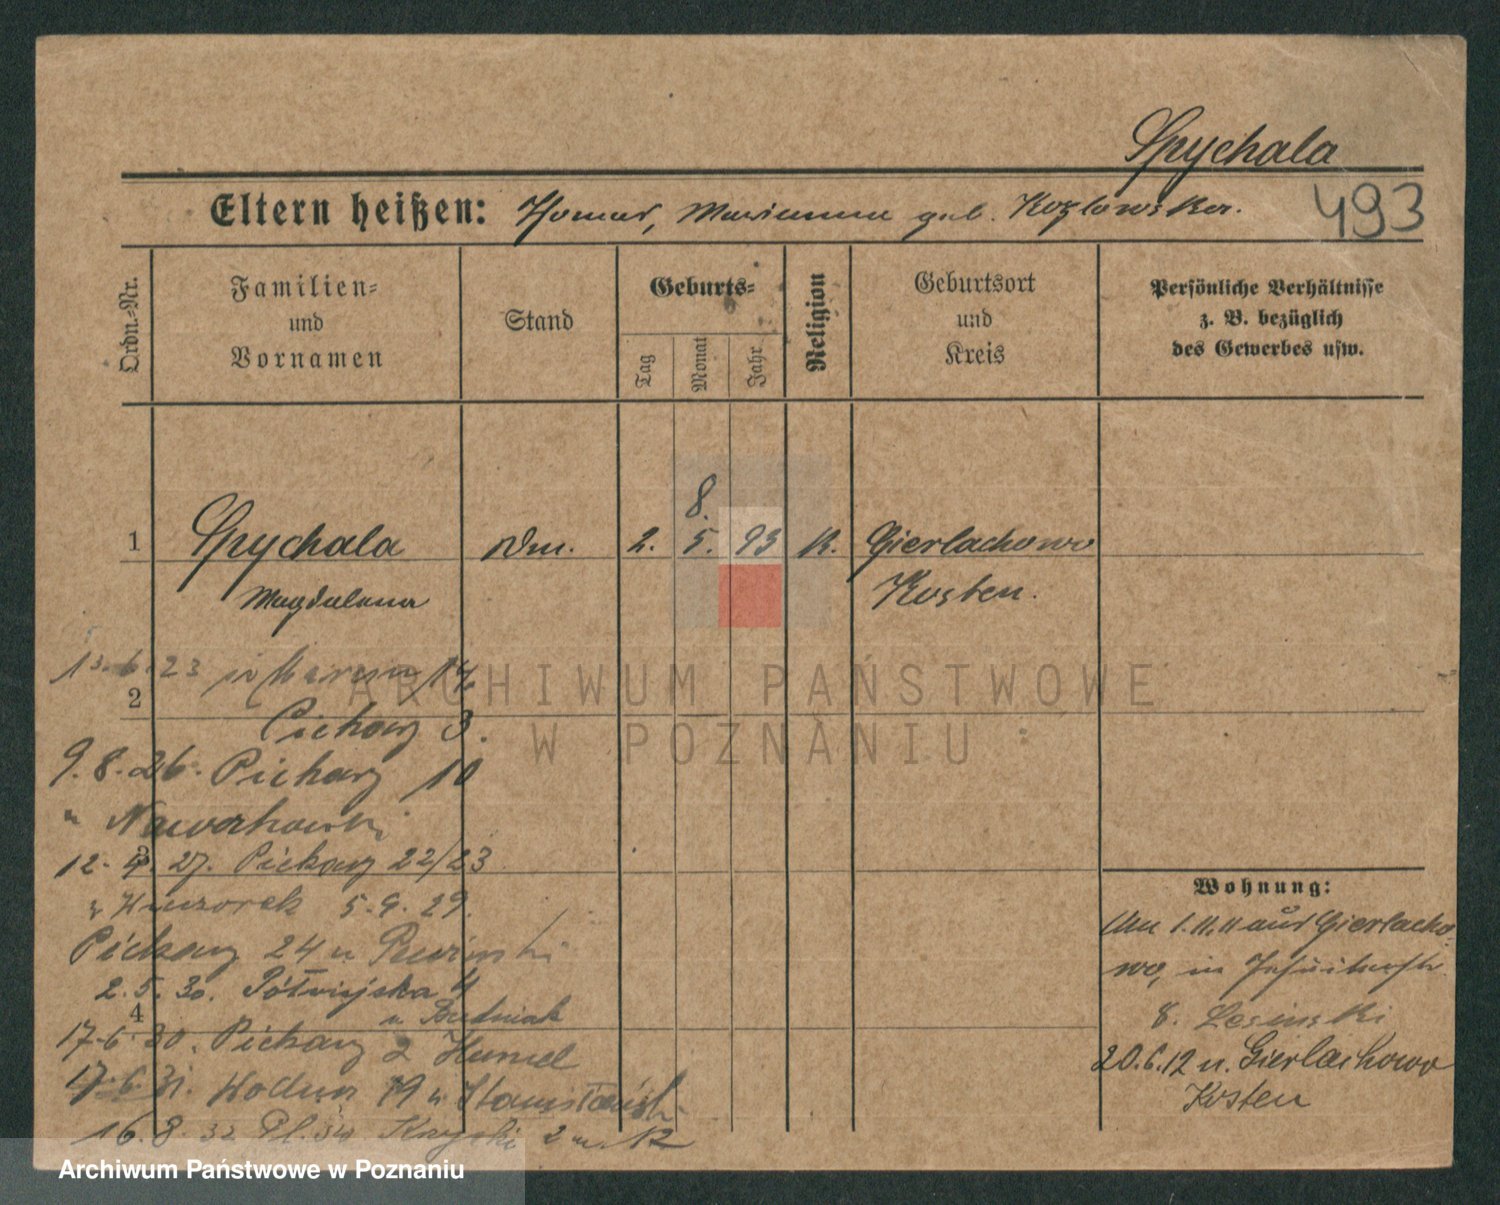 Spychala
Eltern heißen: Thomas, Marianna geb. Kozlowska.
493
Ordn.-Nr.
Familien-
und
Vornamen
Stand
Geburts-
Tag
Monat
Jahr
Religion
Geburtsort
und
Kreis
Persönliche Verhältnisse
z. B. bezüglich
des Gewerbes usw.
8.
1 Spychala 2. 5. 93 K. Gierlachowo
Magdalena Kosten.
13.6.23
2
Piekary 3.
9.8.26. Piekary 10
u Naworkowski
3
12. 4. 27. Piekary 22/23
5.9.29.
Piekary 24 u
2.5.30. Półwiejska 4
4
u Budniak
17.6.30. Piekary 2
17.6.31. Wodna 19 u
16.8.32 Pl.
ARCHIWUM PAŃSTWOWE
W POZNANIU
Wohnung:
Am 1.11.11 aus Gierlacho-
wo, in Jesuitenstr.
8. Lesinski
20.6.12 n. Gierlachowo
Kosten
Archiwum Państwowe w Poznaniu